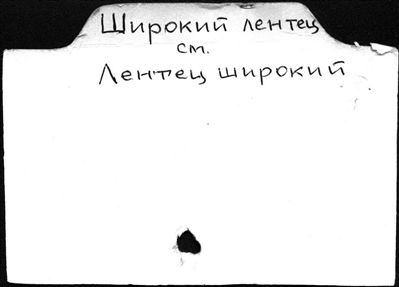 Широкий лентец
см.
Лентец широкий